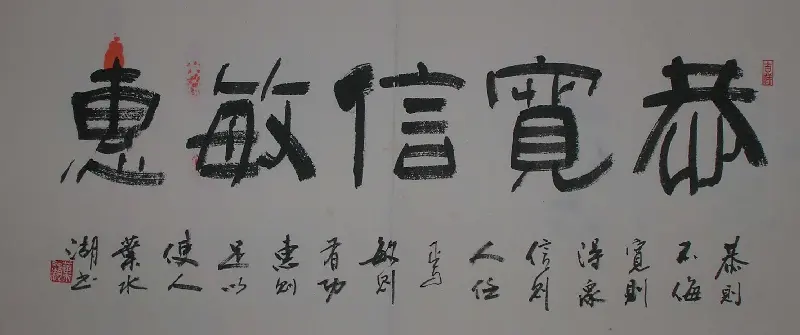 恭寬信敏惠
恭則
不侮
寬則
得眾
信則
人任
焉
敏則
有功
惠則
足以
使人
葉水
湖書